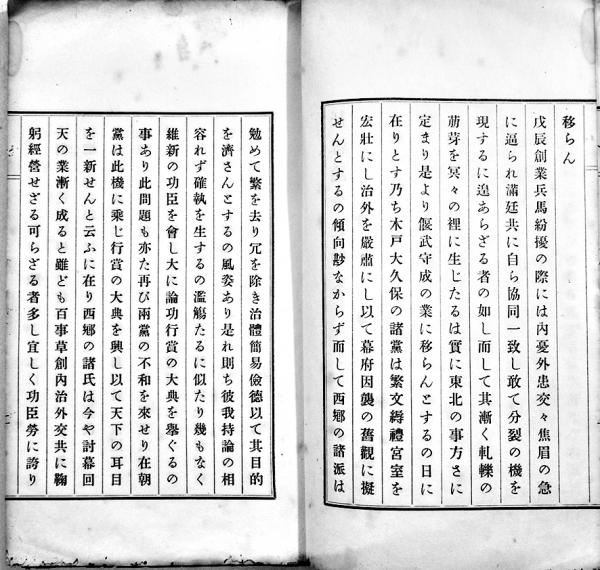 移らん
戊辰創業兵馬紛擾の際には內憂外患交々焦眉の急
に逼られ滿廷共に自ら協同一致し敢て分裂の機を
現するに遑あらざる者の如し而して其漸く軋轢の
萠芽を冥々の裡に生じたるは實に東北の事方さに
定まり是より偃武守成の業に移らんとするの日に
在りとす乃ち木戶大久保の諸黨は繁文縟禮宮室を
宏壯にし治外を嚴肅にし以て幕府因襲の舊觀に擬
せんとするの傾向尠なからず而して西鄕の諸派は
勉めて繁を去り冗を除き治體簡易儉德以て其目的
を濟さんとするの風姿あり是れ則ち彼我持論の相
容れず確執を生ずるの濫觴たるに似たり幾もなく
維新の功臣を會し大に論功行賞の大典を擧ぐるの
事あり此問題も亦た再び兩黨の不和を來せり在朝
黨は此機に乘じ行賞の大典を興し以て天下の耳目
を一新せんと云ふに在り西鄕の諸氏は今や討幕回
天の業漸く成ると雖ども百事草創內治外交共に鞠
躬經營せざる可らざる者多し宜しく功臣勞に誇り